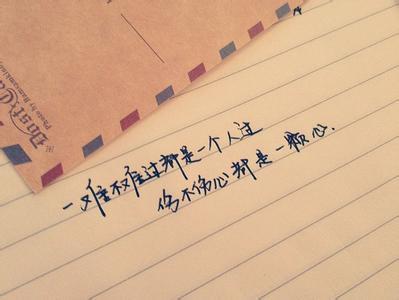 难不难过都是一个人过
伤不伤心都是一颗心.